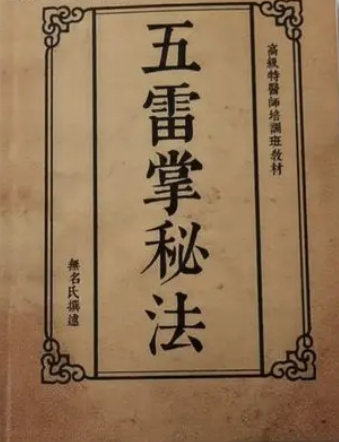 高級特醫師培訓班教材
五雷掌秘法
無名氏撰遠